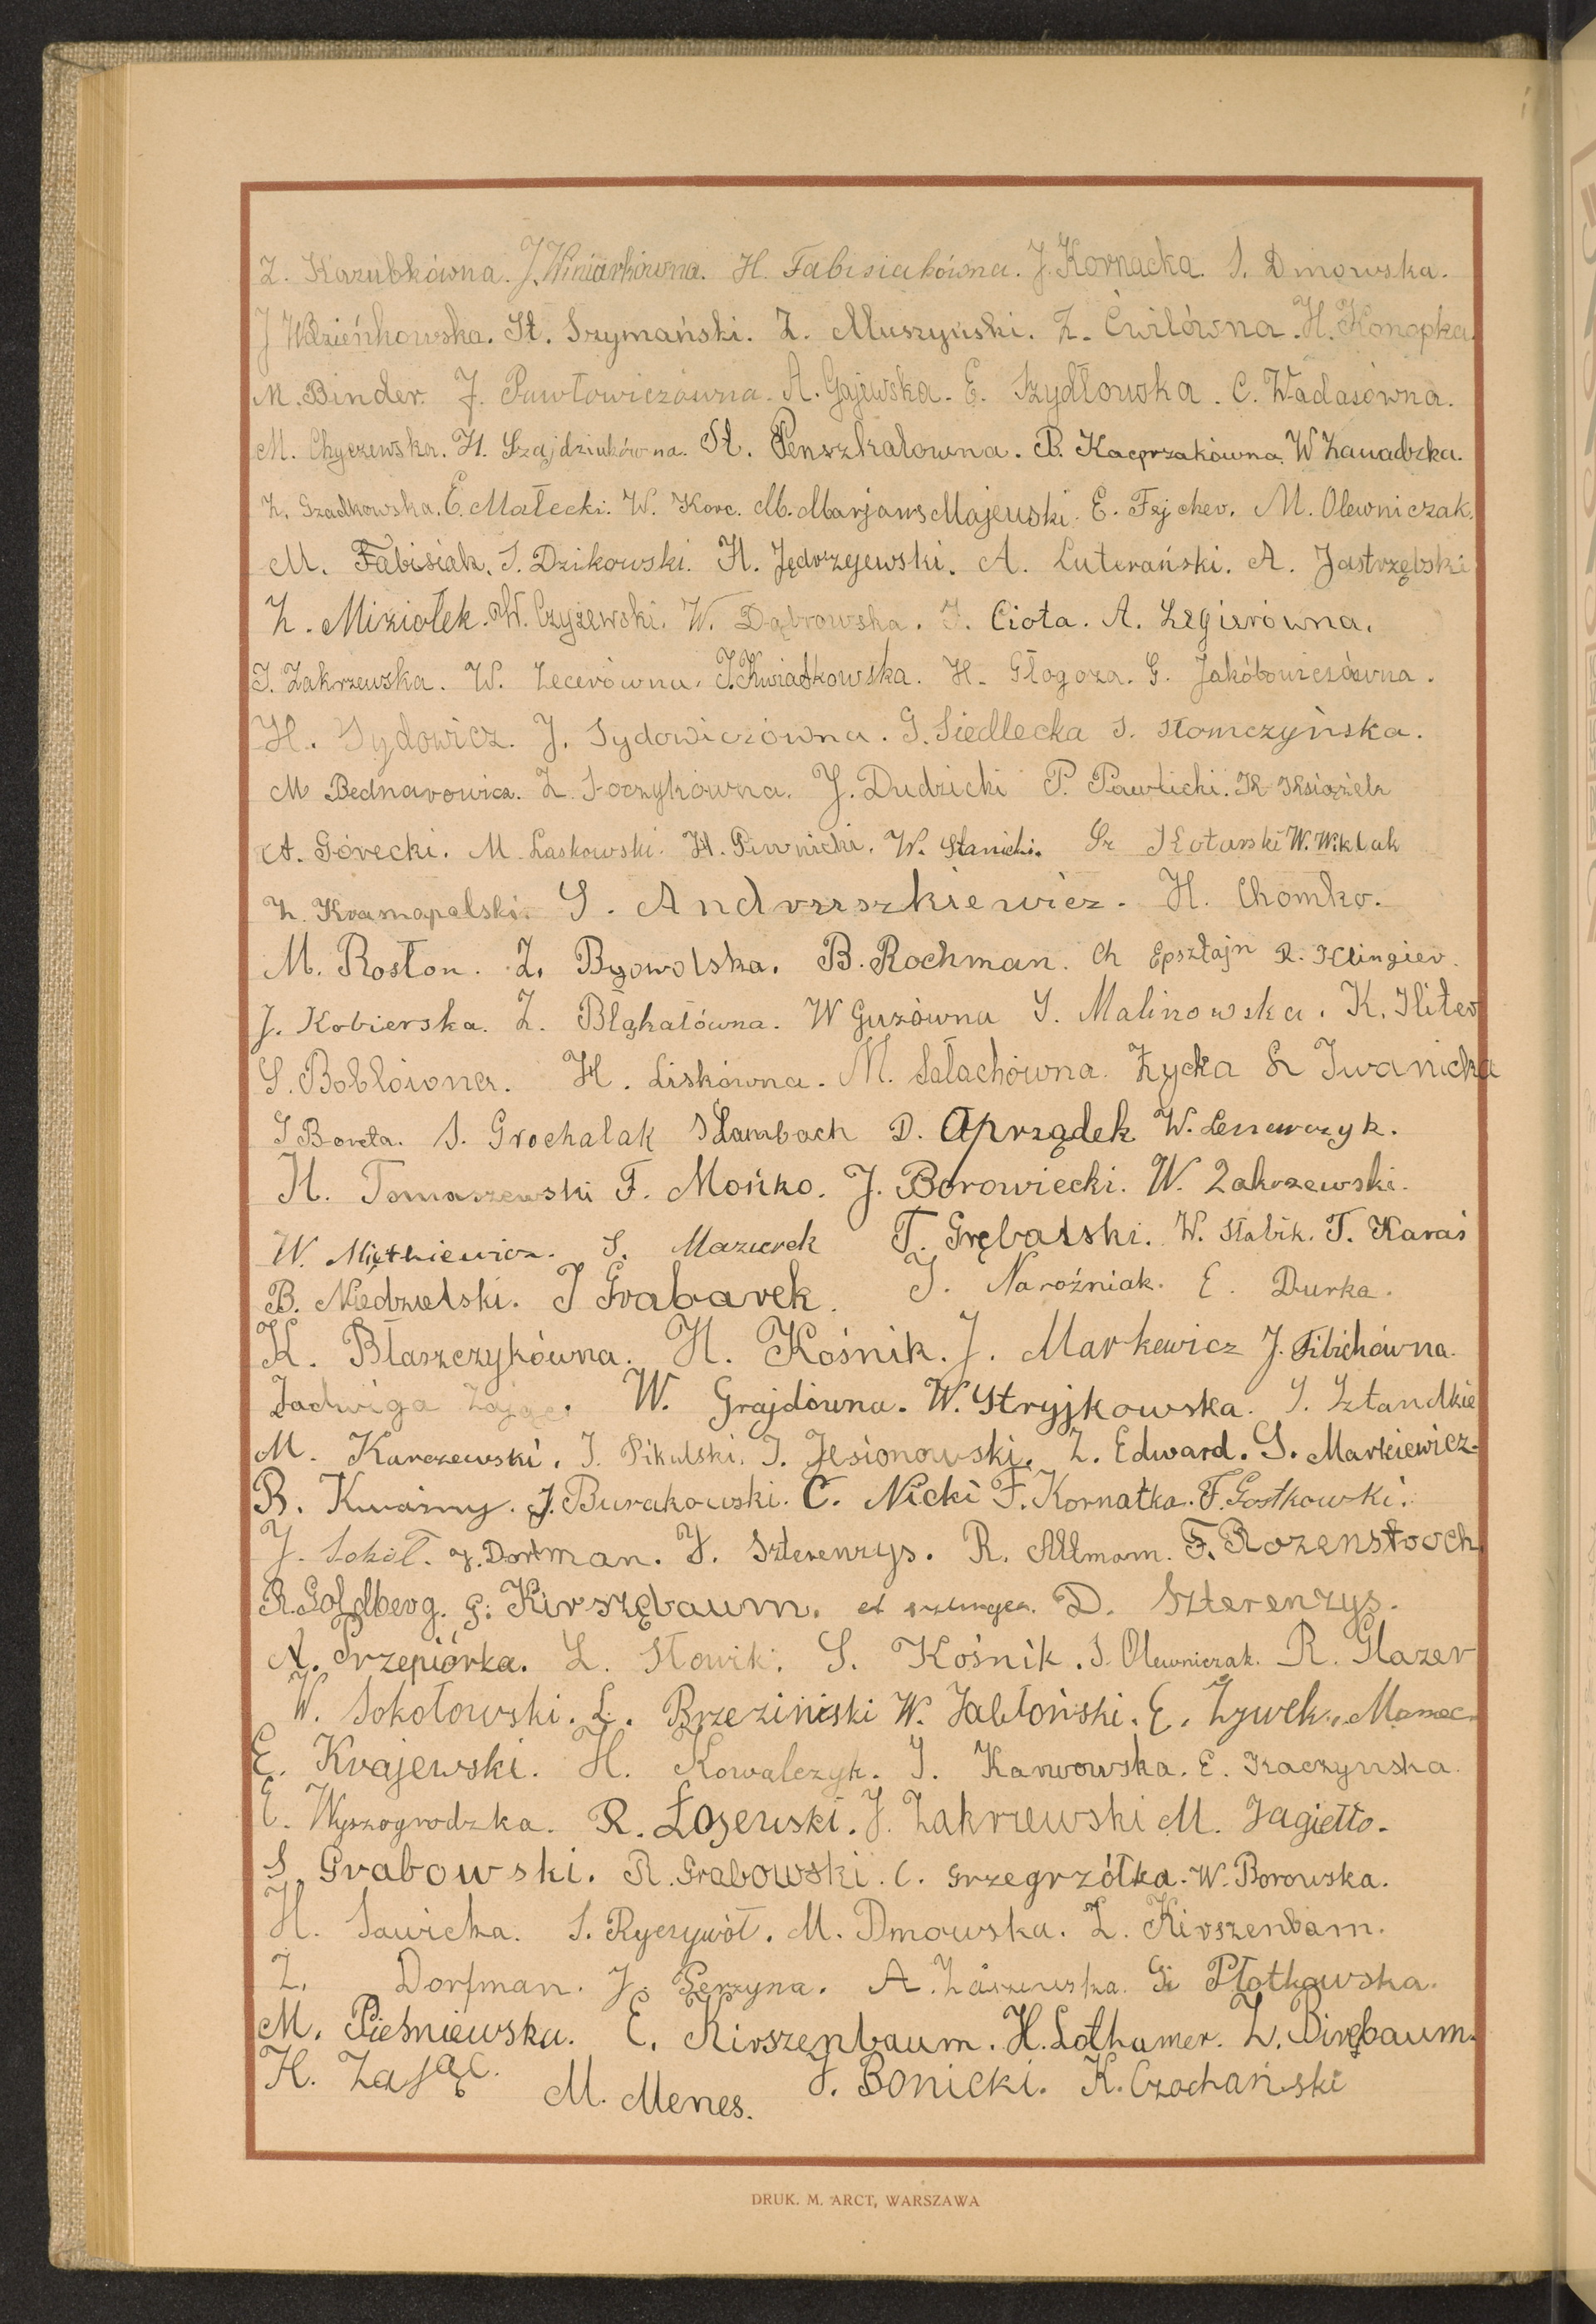 Z. Kazubkówna. J. Winiarkówna. H. Fabisiakówna. J. Kornacka. S. Dmowska.
J Wdzieńkowska. St. Szymański. Z. Muszyński. Z. Ćwilówna. H. Konopka.
M. Binder. J. Pawłowiczówna. A. Gajewska. E. Szydłowska. C. Wadasówna.
M. Chyczewska. H. Szajdziukówna. St. Penszkalowna. B. Kacprzakówna W Zawadzka.
Z. Gzadkowska. E. Małecki. W. Korc. M. Marjans Majewski. E. Fejcher. M. Olewniczak.
M. Fabisiak. S. Dzikowski. H. Jędrzejewski. A. Luterański. A. Jastrzębski
Z. Miziołek. W. Czyżewski. W. Dąbrowska. J. Ciota. A. Legierówna.
J. Zakrzewska. W. Lecerówna. J. Kwiatkowska. H. Głogoza. G. Jakóbowiczówna.
H. Sydowicz. J. Sydowiczówna. G. Siedlecka S. Słomczyńska.
M Bednarowicz. Z. Soczykówna. J. Dudzicki P. Pawlicki. K Książek
A. Górecki. M. Laskowski. H. Piwnicki. W. Stanicki. Kotarski W. Wiklak
Z. Krasnopolski. S. Andrzeszkiewicz. H. Chomko.
M. Rosłon. Z. Bgowolska. B. Rochman. Ch Epsztajn R. Klingier.
J. Kobierska. Z. Błąkałówna. W Guzówna S. Malinowska. K. Hiler
S. Boblówna. H. Liskówna. M. Sałachówna. Życka L Iwanicka
J Boreta. S. Grochalak S Lambach D. Oprządek W. Lenarczyk.
H. Tomaszewski F. Mońko. J. Borowiecki. W. Zakrzewski.
W. Miętkiewicz. S. Mazurek T. Grębalski. W. Słabik. T. Karaś
B. Niedzielski. J Grabarek. J. Naroźniak. E. Durka.
K. Błaszczykówna. H. Kośnik. J. Markewicz J. Fibichówna.
Jadwiga Zając. W. Grajdówna. W. Stryjkowska. S. Sztandkie
M. Karczewski. J. Pikulski. J. Jesionowski. Z. Edward. S. Markiewicz.
B. Kwaśny. J. Burakowski. C. Nicki F. Kornatka. F. Gostkowski.
J. Sokół. J. Dorfman. J. Szterenzys. R. Allmam. F. Rozensztoch.
R. Goldberg. G. Kirszębaum. D. Szterenzys.
A. Przepiórka. L. Słowik. S. Kośnik. S. Olewniczak. R. Glazer
W. Sokołowski. L. Brzeziniski W. Jabłoński. E. Żywek. Mamec
E. Krajewski. H. Kowalczyk. J. Karwowska. E. Kaczynska.
E. Wyszogrodzka. R. Łojewski. J. Zakrzewski M. Jagiełło.
S. Grabowski. R. Grabowski. C. Grzegrzółka. W. Borowska.
H. Sawicka. S. Ryczywół. M. Dmowska. Z. Kirszenbam.
Z. Dorfman. J. Gerzyna. A. Zaszewska. Płotkowska.
M. Pieśniewska. E. Kirszenbaum. H. Lothamer. Z. Biregbaum.
H. Zając. M. Menes. J. Bonicki. K. Czochański
DRUK. M. ARCT, WARSZAWA